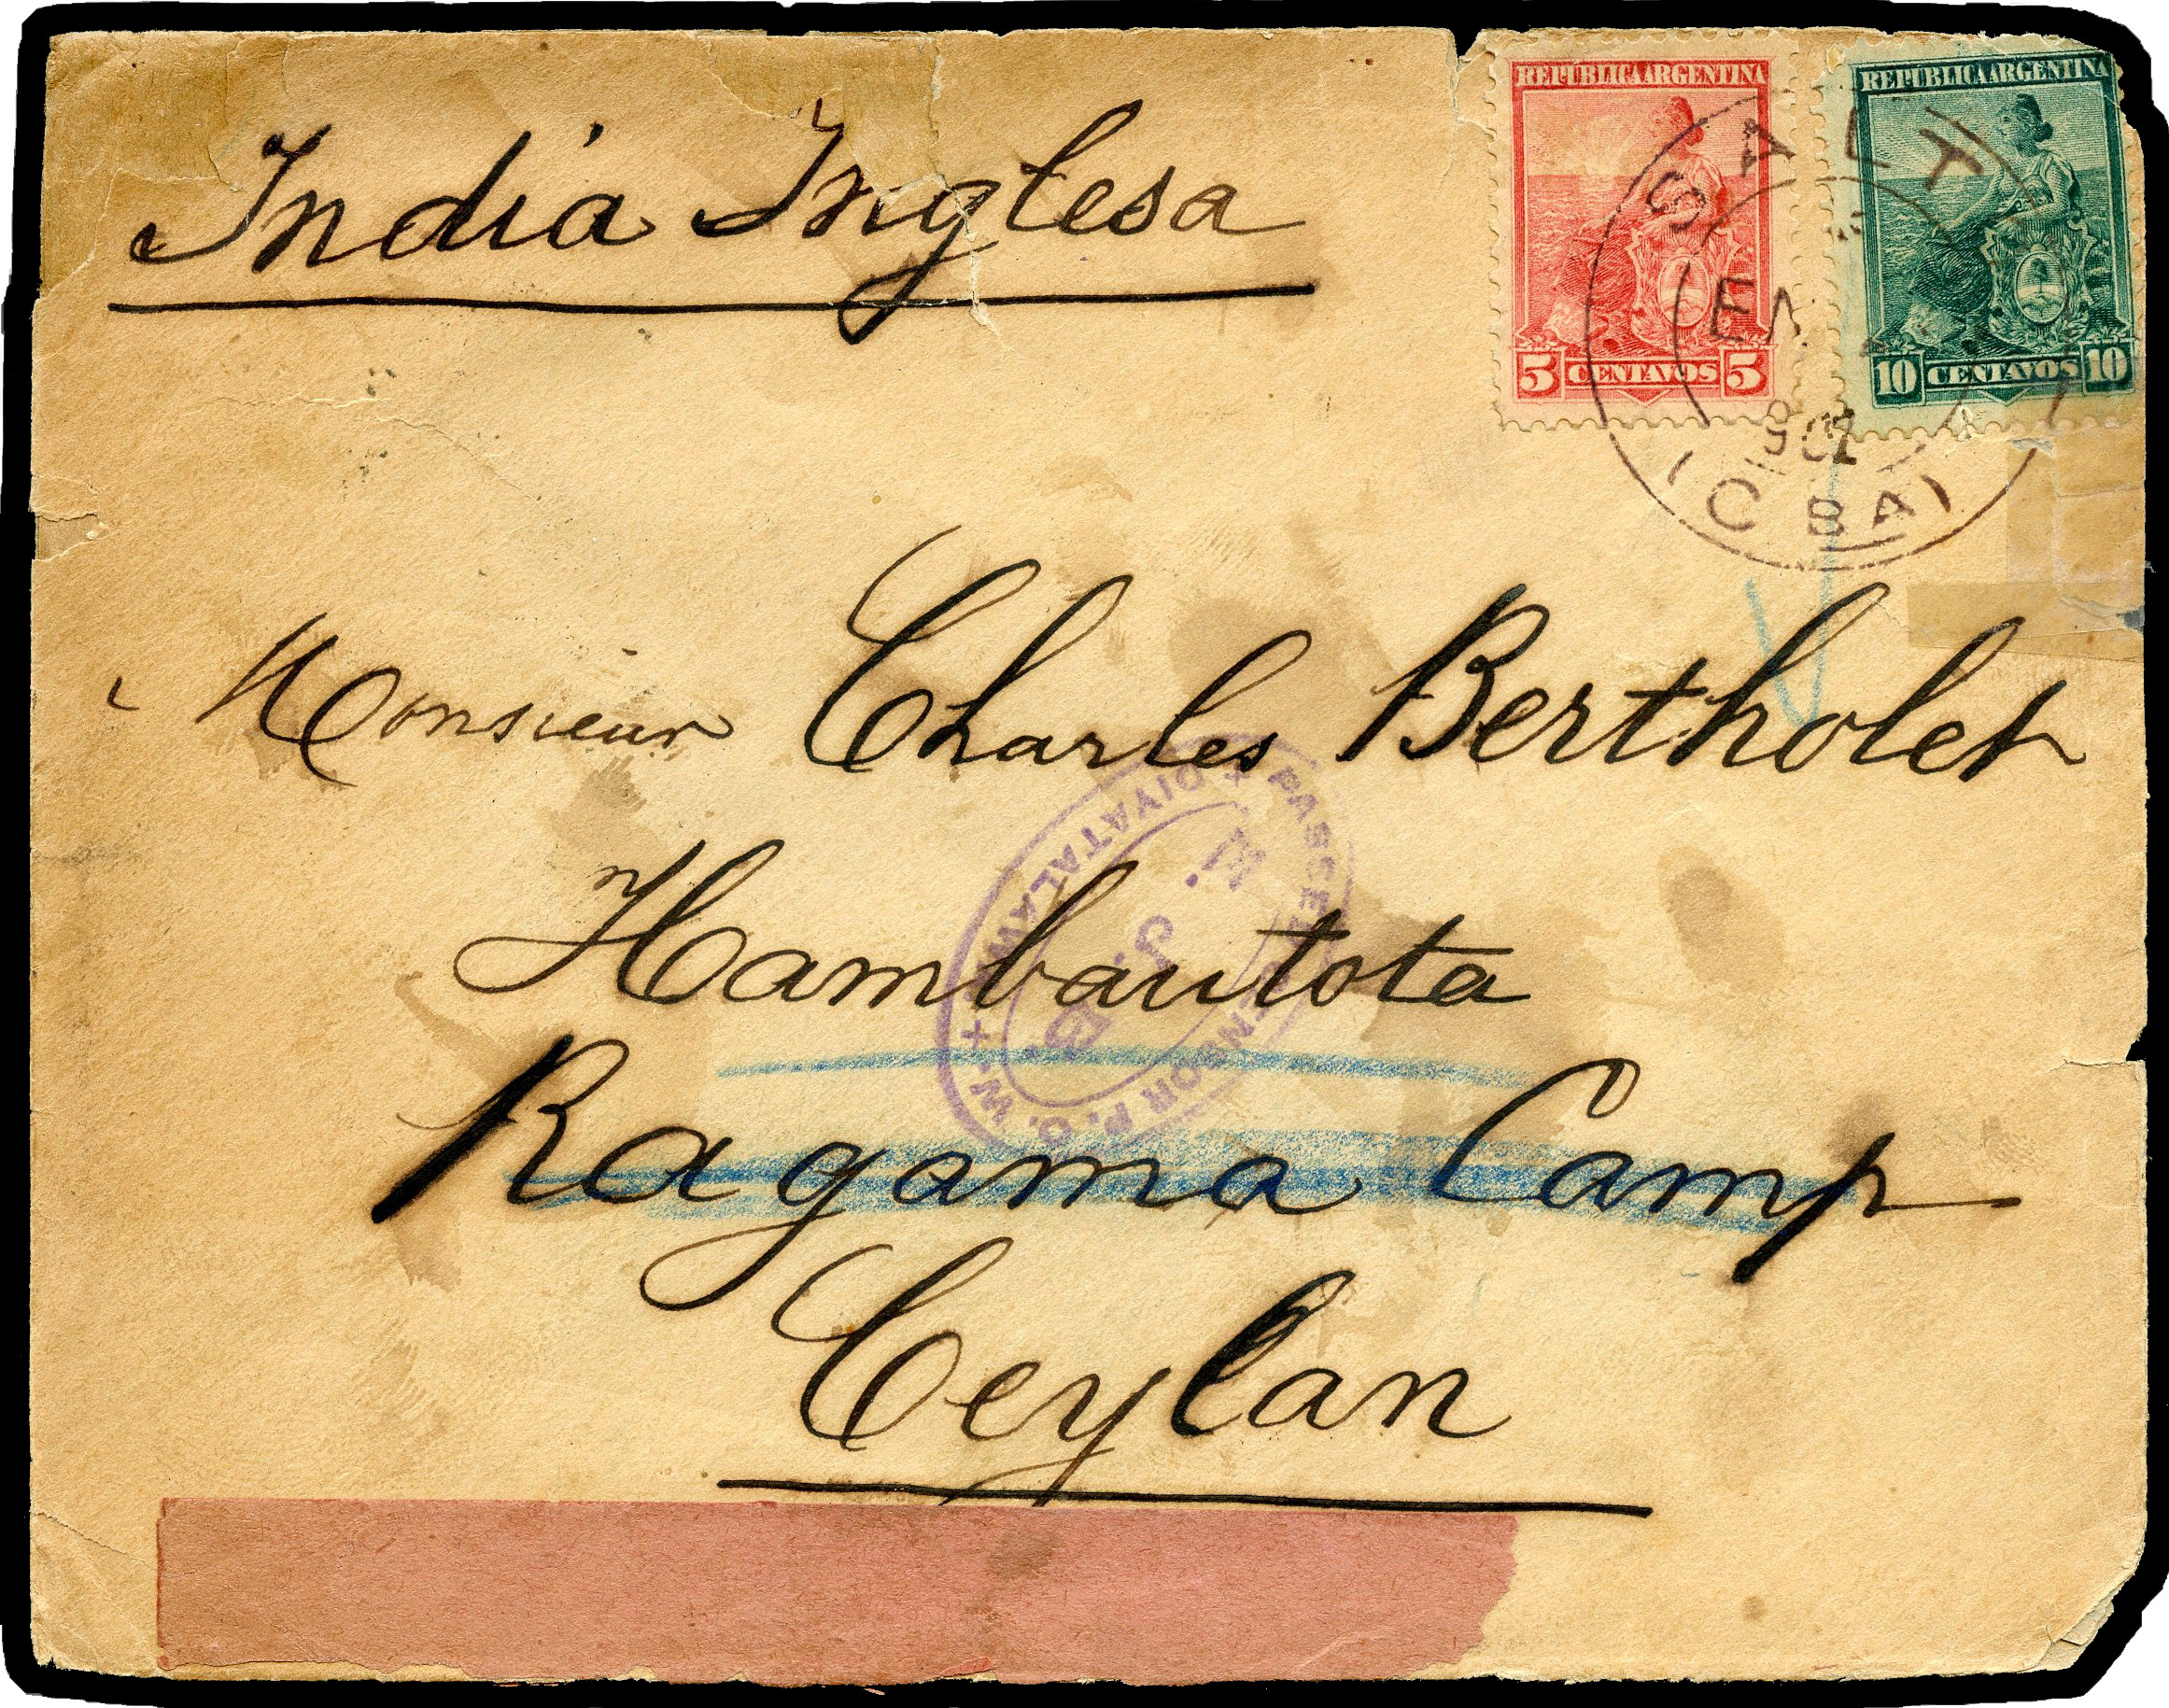 India Inglesa
REPUBLICA ARGENTINA
5 CENTAVOS 5
REPUBLICA ARGENTINA
10 CENTAVOS 10
SALT
902
(C BA)
Monsieur Charles Bertholet
PASSED CENSOR P.O.W.
× DIYATALAWA ×
W. J. B.
Hambautota
Ragama Camp
Ceylan